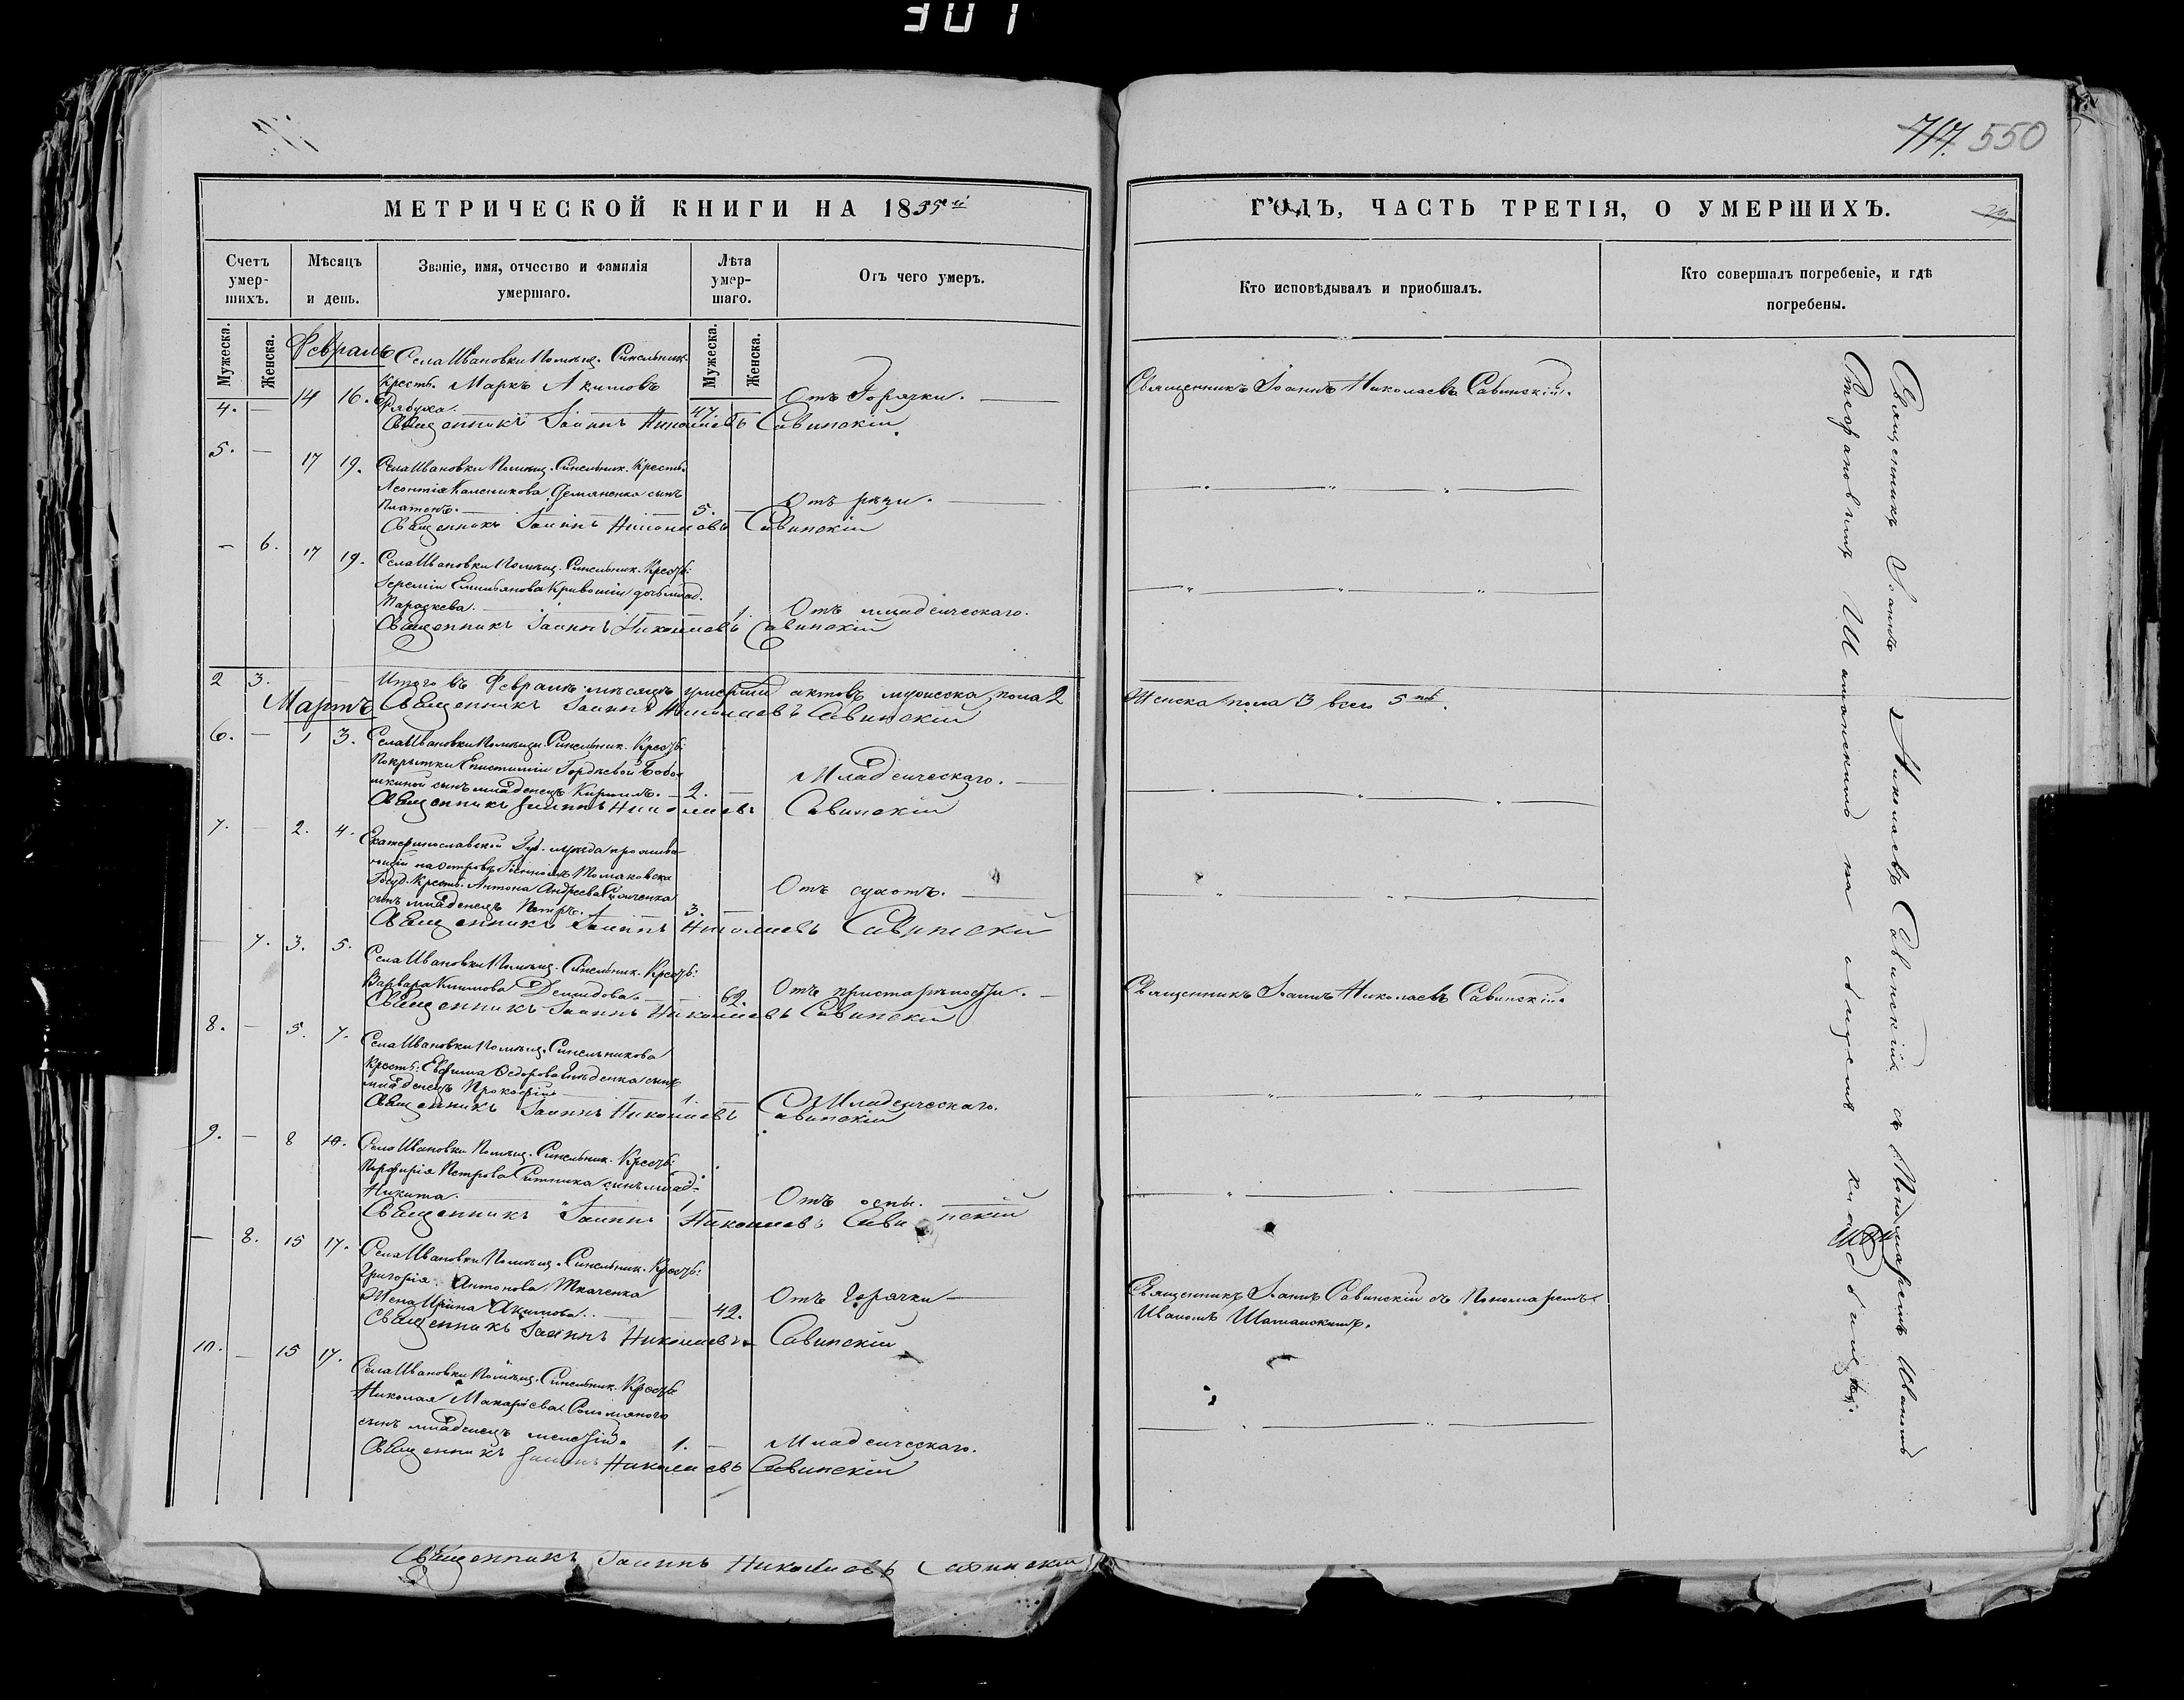 301
717. 550
МЕТРИЧЕСКОЙ КНИГИ НА 1835й
ГОДЪ, ЧАСТЬ ТРЕТІЯ, О УМЕРШИХЪ.
29
Счетъ умершихъ.
Мѣсяцъ и день.
Званіе, имя, отчество и фамилія умершаго.
Лѣта умершаго.
Отъ чего умеръ.
Кто исповѣдывалъ и пріобщалъ.
Кто совершалъ погребеніе, и гдѣ погребены.
Мужеска.
Женска.
Мужеска.
Женска.
Февраль
Села Ивановки Помѣщ. Синельник.
4. — 14 16. Крестья. Маркъ Акимовъ
Рябуха. 47. — Отъ Горячки. Священникъ Іоаннъ Николаевъ Савинскій.
Священникъ Іоаннъ Николаевъ Савинскій
5. — 17 19. Села Ивановки Помѣщ. Синельник. Кресть.
Леонтія Каленикова Демяненка сынъ
Платонъ. 5. —
Священникъ Іоаннъ Николаевъ Савинскій
— 6. 17 19. Села Ивановки Помѣщ. Синельник. Кресть:
Іереміи Емильянова дочь млад.
Параскева. 1. Отъ младенческаго.
Священникъ Іоаннъ Николаевъ Савинскій
2 3. Итого въ Февралѣ мѣсяцѣ умерши мужеска пола 2 Женска пола 3 всего 5ть.
Мартъ
Священникъ Іоаннъ Николаевъ Савинскій
6. — 1 3. Села Ивановки Помѣщи. Синельник. Кресть:
Покрытки Епистиміи Гордѣевой
сынъ младенецъ Кирилъ. 2. — Младенческаго.
Священникъ Іоаннъ Николаевъ Савинскій
7. — 2. 4. Екатеринославской Губ. уѣзда прожива-
ющій на островѣ
Госуд. Крестья. Антона Андреева
сынъ младенецъ Петръ. 3. — Отъ сухотъ.
Священникъ Іоаннъ Николаевъ Савинскій
— 7. 3. 5. Села Ивановки Помѣщ. Синельник. Кресть:
Варвара Климова Демидова. 62. Отъ престарѣлости. Священникъ Іоаннъ Николаевъ Савинскій.
Священникъ Іоаннъ Николаевъ Савинскій
8. — 5. 7. Села Ивановки Помѣщ. Синельникова
Кресть: Евфима Федорова сынъ
младенецъ Прокофій 1. — Младенческаго.
Священникъ Іоаннъ Николаевъ Савинскій
9. — 8 10. Села Ивановки Помѣщ. Синельник. Кресть:
Порфирія Петрова Ситника сынъ млад.
Никита. 1 Отъ оспы.
Священникъ Іоаннъ Николаевъ Савинскій
— 8. 15 17. Села Ивановки Помѣщ. Синельник. Кресть:
Григорія Антонова Ткаченка
Жена Ирина Акимова. 42. Отъ Горячки Священникъ Іоаннъ Савинскій съ Пономаремъ
Иваномъ Шатанскимъ.
Священникъ Іоаннъ Николаевъ Савинскій
10. — 15 17. Села Ивановки Помѣщ. Синельник. Кресть:
Николая Макаріева Соломяного
сынъ младенецъ 1. — Младенческаго.
Священникъ Іоаннъ Николаевъ Савинскій
Священникъ Іоаннъ Николаевъ Савинскій съ Пономаремъ Иваномъ
Стефановымъ Шатанскимъ на общемъ кладбищѣ.
Священникъ Іоаннъ Николаевъ Савинскій